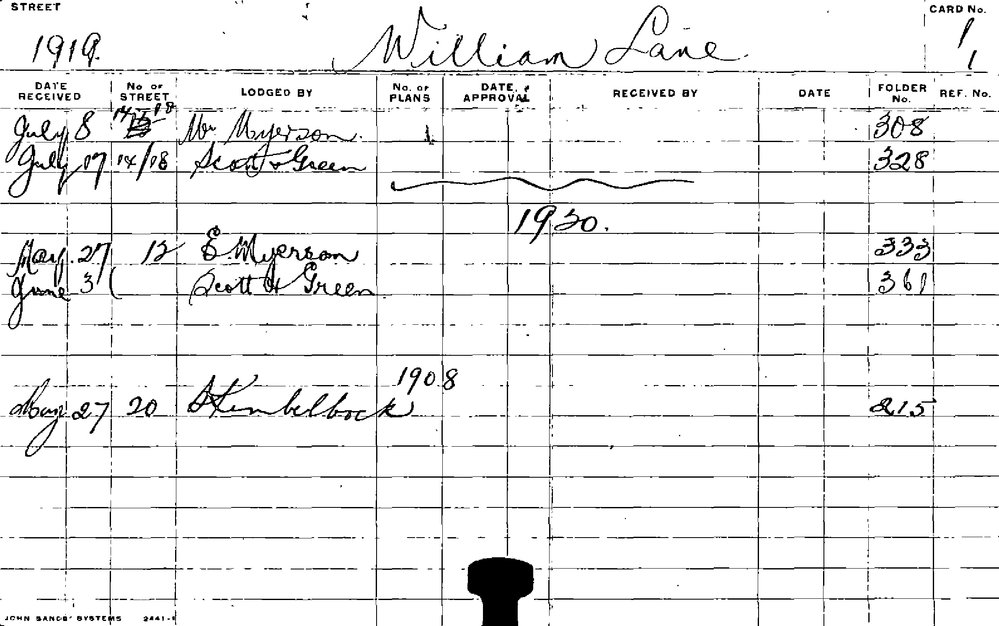 STREET
CARD No.
1919.
William Lane
1
1
DATE RECEIVED
No OF STREET
LODGED BY
No. OF PLANS
DATE APPROVAL
RECEIVED BY
DATE
FOLDER No.
REF. No.
July 8 14 18 Mr Myerson. 1 308
July 17 14/18 Scott & Green 328
1930.
May. 27 12 E. Myerson 333
June 3 Scott & Green 361
1908
May 27 20 215
JOHN SANDS' SYSTEMS 2441-1